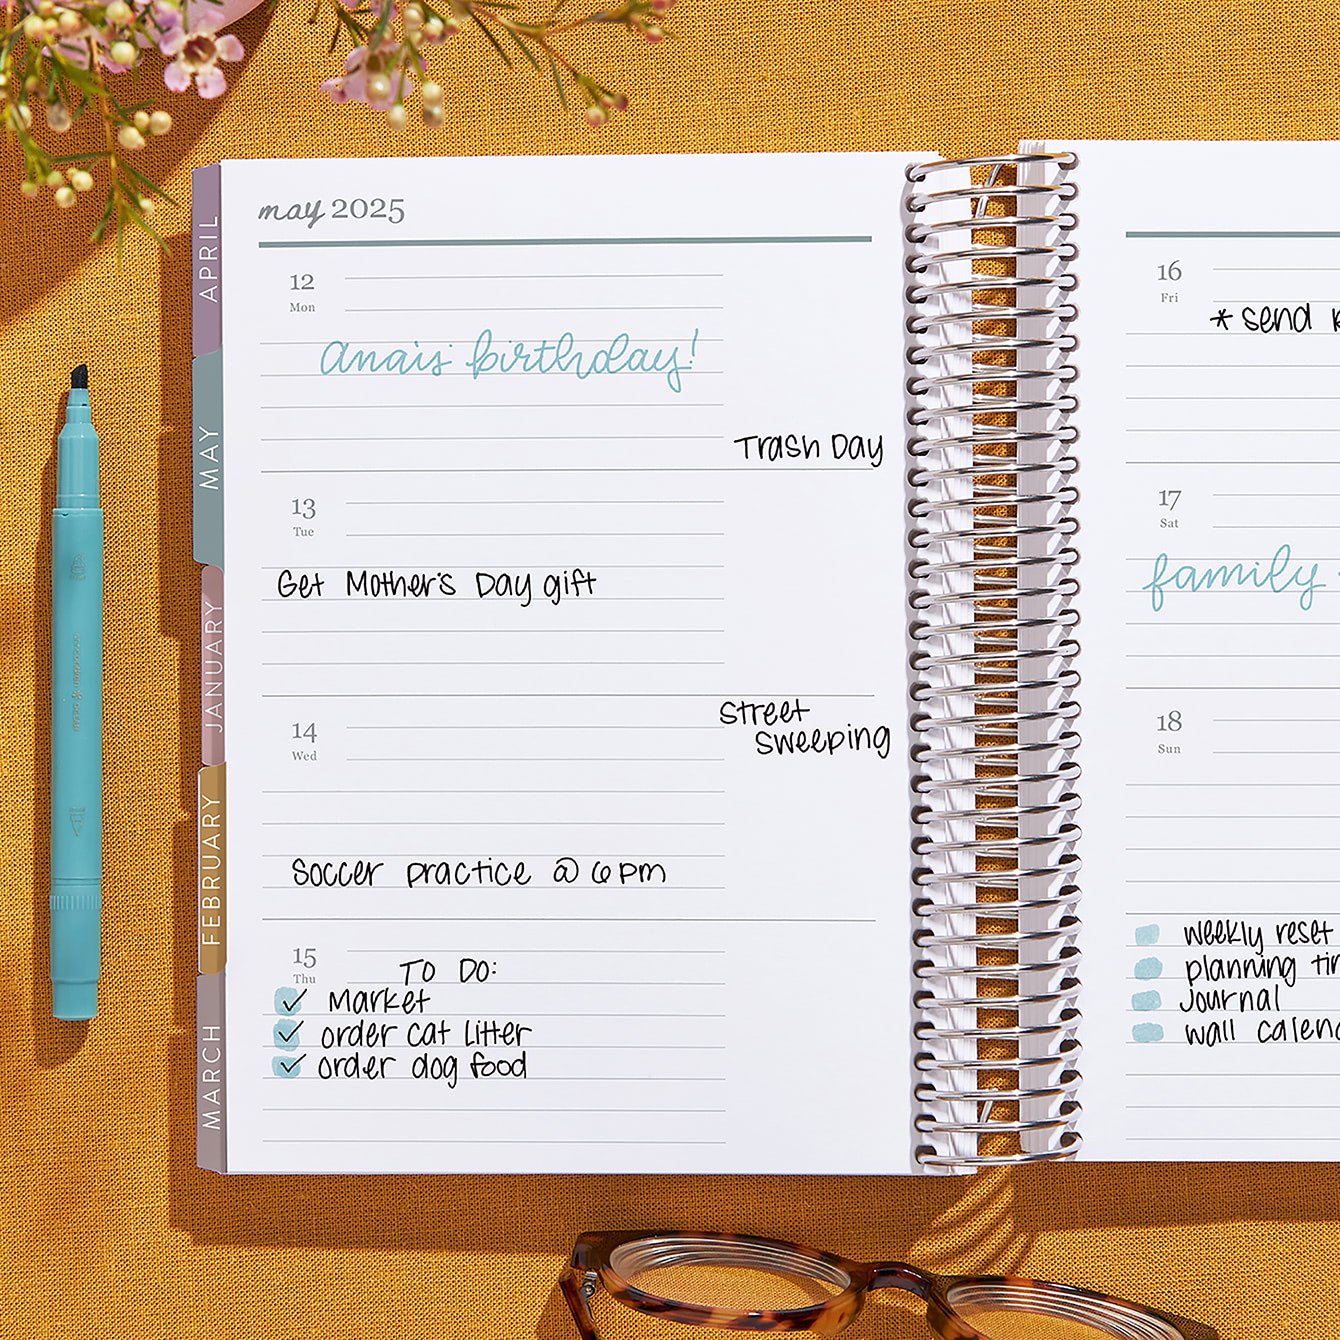 may 2025
12
Mon
anais birthday!
Trash Day
13
Tue
Get Mother's Day gift
14
Wed
Street
Sweeping
Soccer practice @ 6pm
15
Thu
To Do:
✓ Market
✓ order cat litter
✓ order dog food
16
Fri
* send
17
Sat
family
18
Sun
weekly reset
planning
Journal
wall
APRIL
MAY
JANUARY
FEBRUARY
MARCH